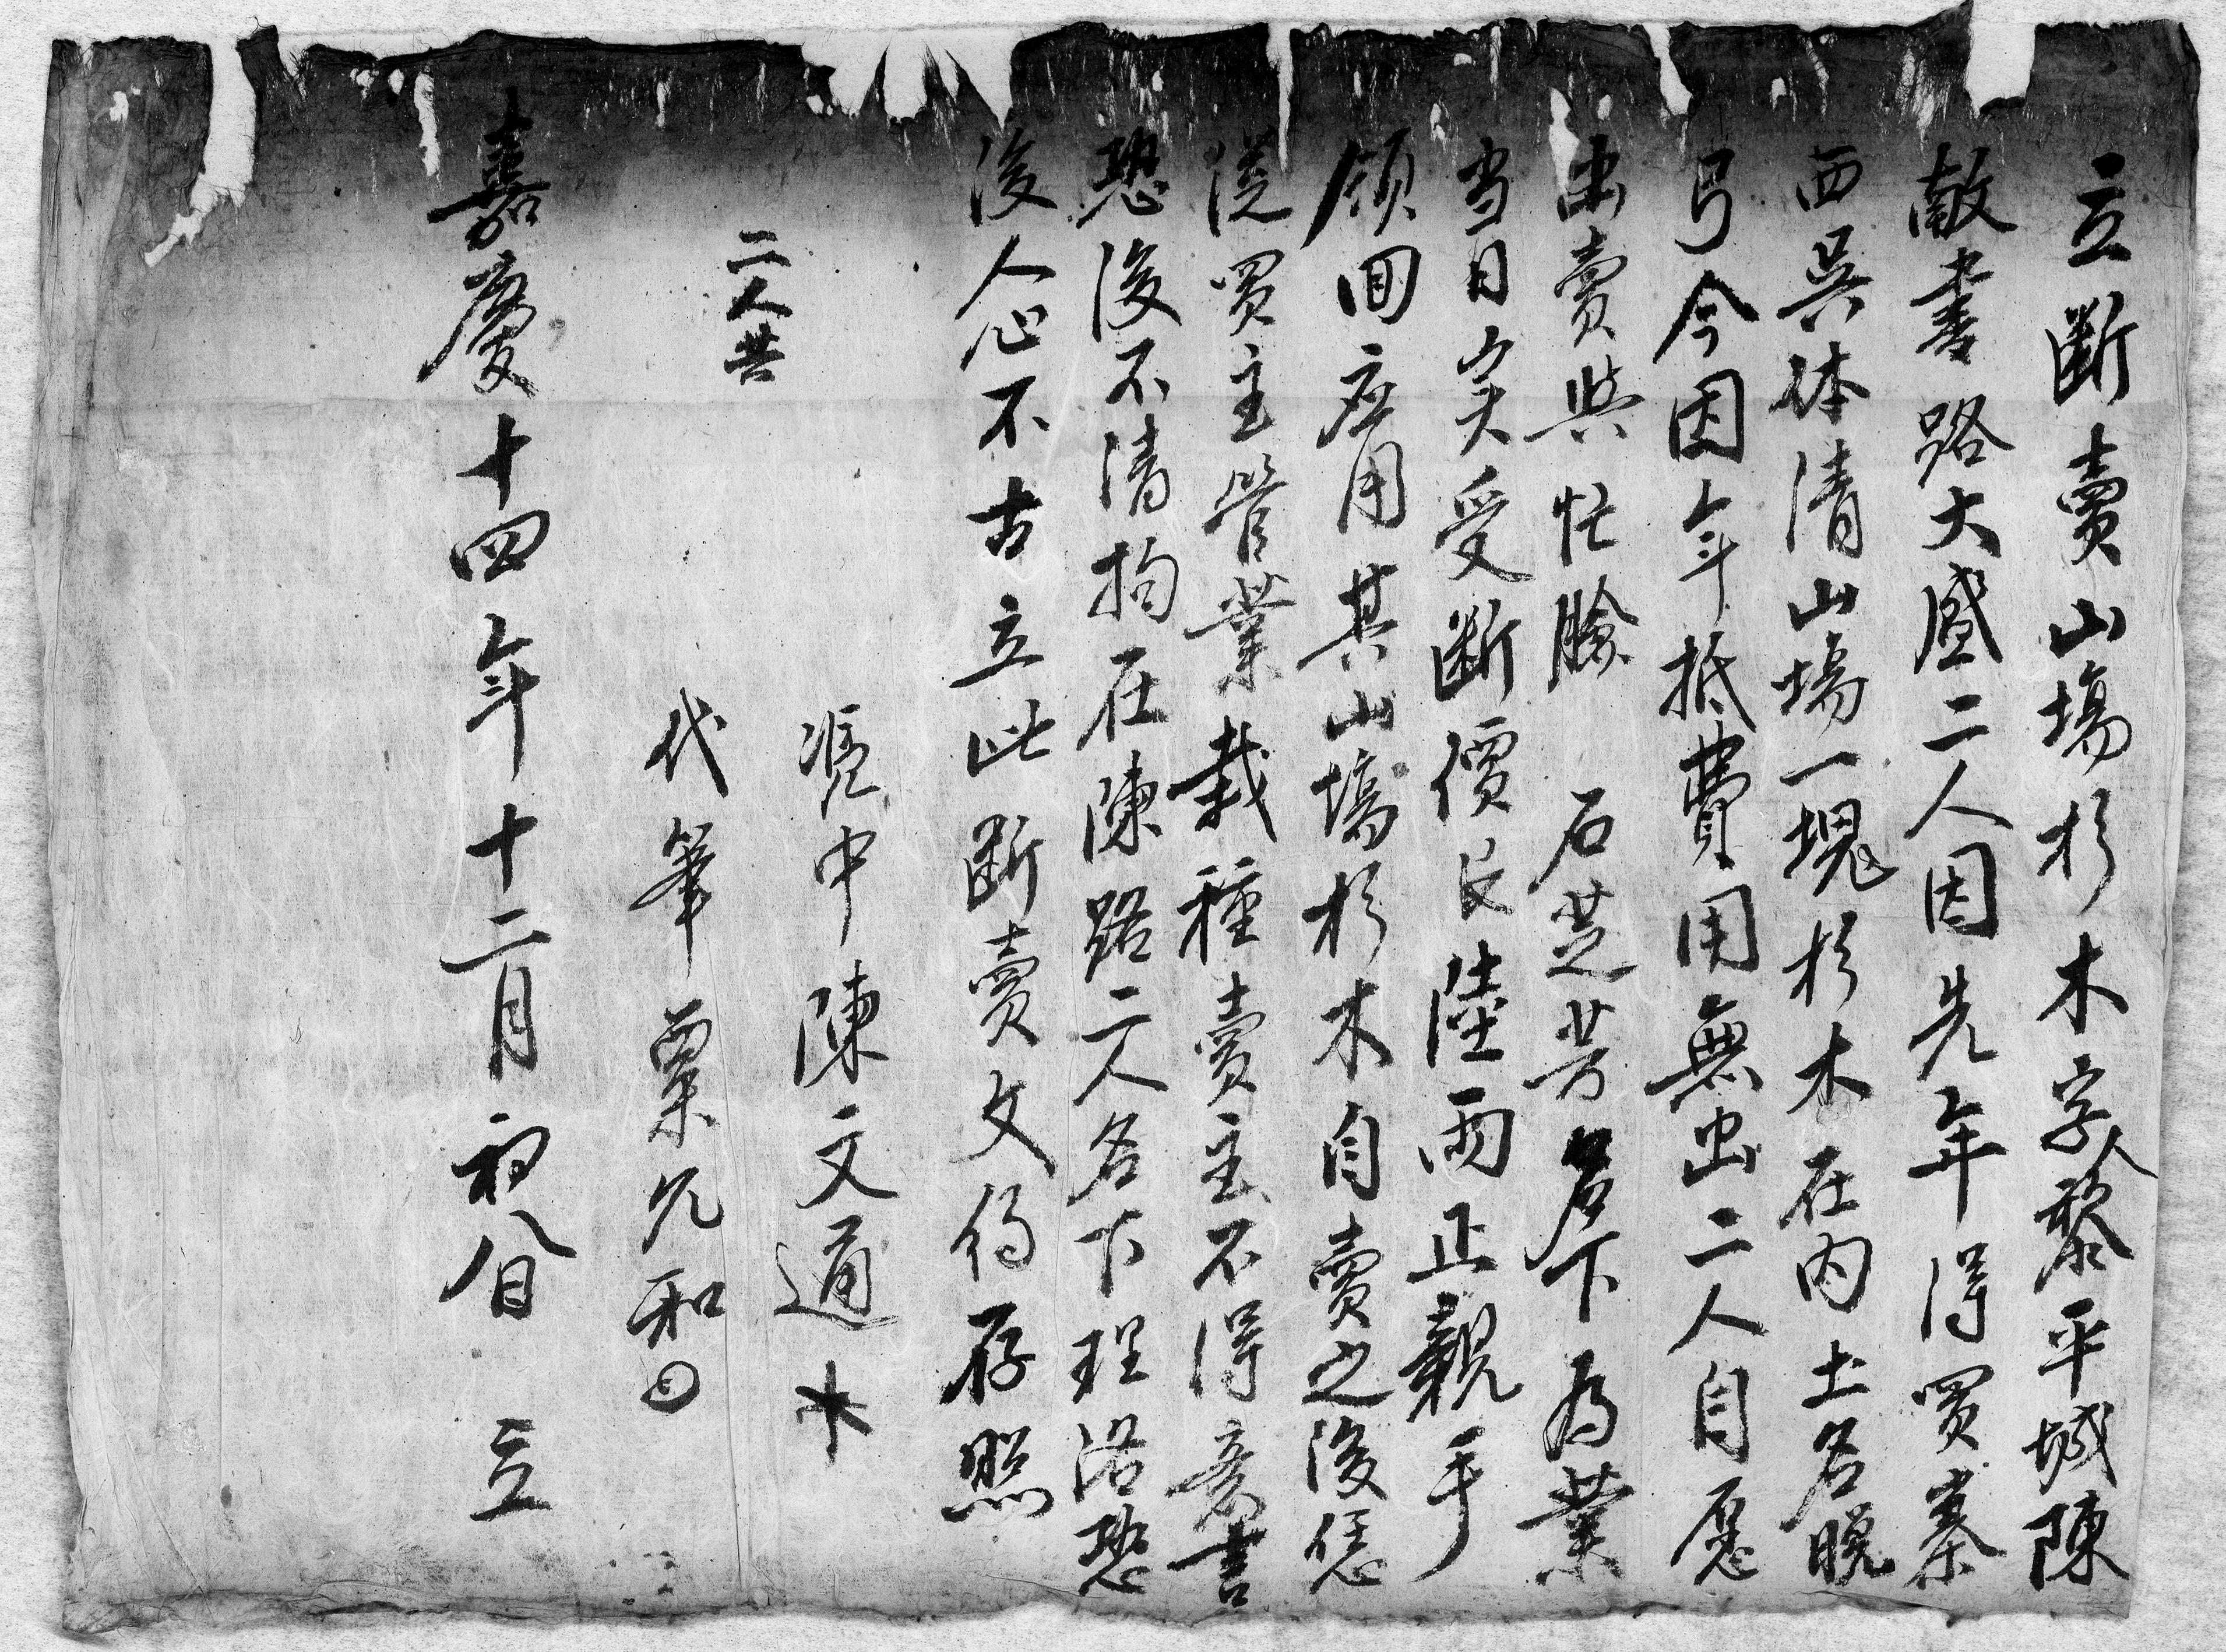 立斷賣山塲杉木字人黎平城陳
敵書路大盛二人因先年得買秦
西吳体清山塲一塊杉木在内土名晚
弓今因年抵費用無出二人自愿
出賣與忙臉 石芝芳名下為業
当日実受斷價艮陸両正親手
領回應用其山塲杉木自賣之後恁
從買主管業栽種賣主不得意書
恐後不清拘在陳路二人名下理洛恐
後人心不古立此断賣文約存照
二人共
凭中陳文道
代筆粟允和
嘉慶十四年十二月初八日 立